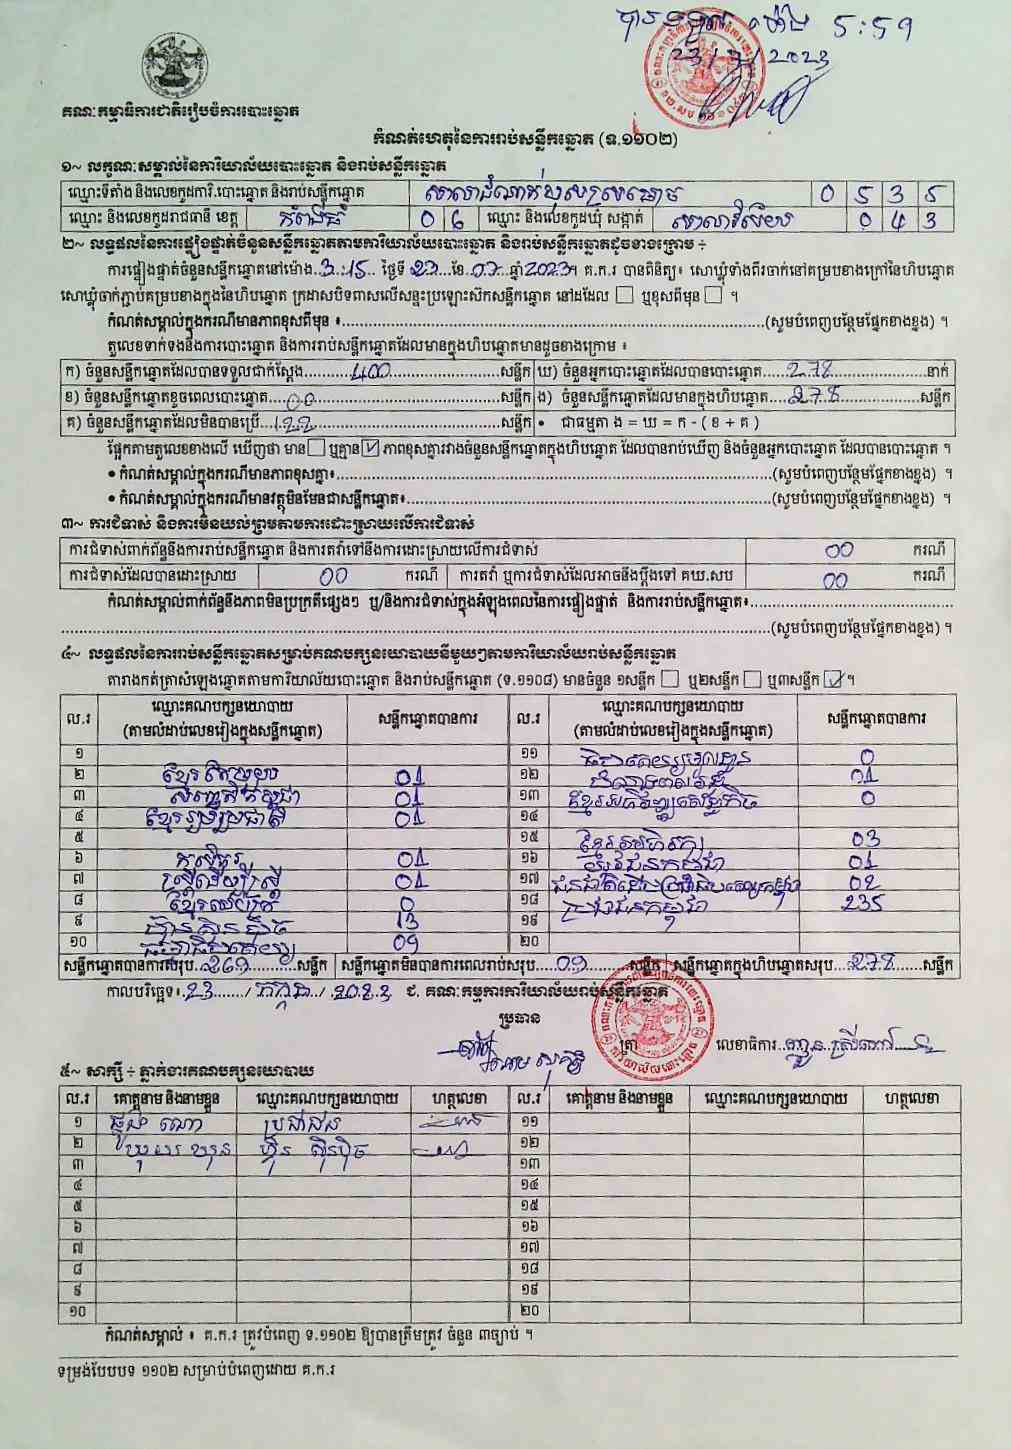 5:59
23/7/2023
គណៈកម្មាធិការជាតិរៀបចំការបោះឆ្នោត
កំណត់ហេតុនៃការរាប់សន្លឹកឆ្នោត (ទ.១១០២)
១~ លក្ខណៈសម្គាល់នៃការិយាល័យបោះឆ្នោត និងរាប់សន្លឹកឆ្នោត
ឈ្មោះទីតាំង និងលេខកូដការិ.បោះឆ្នោត និងរាប់សន្លឹកឆ្នោត 0 5 3 5
ឈ្មោះ និងលេខកូដរាជធានី ខេត្ត កំពង់ធំ 0 6 ឈ្មោះ និងលេខកូដឃុំ សង្កាត់ សាលាវិស័យ 0 4 3
២~ លទ្ធផលនៃការផ្ទៀងផ្ទាត់ចំនួនសន្លឹកឆ្នោតតាមការិយាល័យបោះឆ្នោត និងរាប់សន្លឹកឆ្នោតដូចខាងក្រោម ÷
ការផ្ទៀងផ្ទាត់ចំនួនសន្លឹកឆ្នោតនៅម៉ោង..3:15.. ថ្ងៃទី.23..ខែ.07..ឆ្នាំ2023។ គ.ក.រ បានពិនិត្យ៖ សោឃ្លុំទាំងពីរចាក់នៅគម្របខាងក្រៅនៃហិបឆ្នោត
សោឃ្លុំចាក់ភ្ជាប់គម្របខាងក្នុងនៃហិបឆ្នោត ក្រដាសបិទពាសលើសន្ទះប្រឡោះស៊កសន្លឹកឆ្នោត នៅដដែល ☐ ឬខុសពីមុន ☐ ។
កំណត់សម្គាល់ក្នុងករណីមានភាពខុសពីមុន ៖..........(សូមបំពេញបន្ថែមផ្នែកខាងខ្នង) ។
តួលេខទាក់ទងនឹងការបោះឆ្នោត និងការរាប់សន្លឹកឆ្នោតដែលមានក្នុងហិបឆ្នោតមានដូចខាងក្រោម ៖
ក) ចំនួនសន្លឹកឆ្នោតដែលបានទទួលជាក់ស្តែង..........400..........សន្លឹក ឃ) ចំនួនអ្នកបោះឆ្នោតដែលបានបោះឆ្នោត.....278..........នាក់
ខ) ចំនួនសន្លឹកឆ្នោតខូចពេលបោះឆ្នោត....00..........សន្លឹក ង) ចំនួនសន្លឹកឆ្នោតដែលមានក្នុងហិបឆ្នោត....278..........សន្លឹក
គ) ចំនួនសន្លឹកឆ្នោតដែលមិនបានប្រើ...122..........សន្លឹក • ជាធម្មតា ង = ឃ = ក - ( ខ + គ )
ផ្អែកតាមតួលេខខាងលើ ឃើញថា មាន ☐ ឬគ្មាន ☑ ភាពខុសគ្នារវាងចំនួនសន្លឹកឆ្នោតក្នុងហិបឆ្នោត ដែលបានរាប់ឃើញ និងចំនួនអ្នកបោះឆ្នោត ដែលបានបោះឆ្នោត ។
• កំណត់សម្គាល់ក្នុងករណីមានភាពខុសគ្នា៖..........(សូមបំពេញបន្ថែមផ្នែកខាងខ្នង) ។
• កំណត់សម្គាល់ក្នុងករណីមានវត្ថុមិនមែនជាសន្លឹកឆ្នោត៖..........(សូមបំពេញបន្ថែមផ្នែកខាងខ្នង) ។
៣~ ការជំទាស់ និងការមិនយល់ព្រមតាមការដោះស្រាយលើការជំទាស់
ការជំទាស់ពាក់ព័ន្ធនឹងការរាប់សន្លឹកឆ្នោត និងការតវ៉ាទៅនឹងការដោះស្រាយលើការជំទាស់ 00 ករណី
ការជំទាស់ដែលបានដោះស្រាយ 00 ករណី ការតវ៉ា ឬការជំទាស់ដែលអាចនឹងប្តឹងទៅ គឃ.សប 00 ករណី
កំណត់សម្គាល់ពាក់ព័ន្ធនឹងភាពមិនប្រក្រតីផ្សេងៗ ឬ/និងការជំទាស់ក្នុងអំឡុងពេលនៃការផ្ទៀងផ្ទាត់ និងការរាប់សន្លឹកឆ្នោត៖..........
..........(សូមបំពេញបន្ថែមផ្នែកខាងខ្នង) ។
៤~ លទ្ធផលនៃការរាប់សន្លឹកឆ្នោតសម្រាប់គណបក្សនយោបាយនីមួយៗតាមការិយាល័យរាប់សន្លឹកឆ្នោត
តារាងកត់ត្រាសំឡេងឆ្នោតតាមការិយាល័យបោះឆ្នោត និងរាប់សន្លឹកឆ្នោត (ទ.១១០៨) មានចំនួន ១សន្លឹក ☐ ឬ២សន្លឹក ☐ ឬ៣សន្លឹក ☑ ។
ល.រ ឈ្មោះគណបក្សនយោបាយ (តាមលំដាប់លេខរៀងក្នុងសន្លឹកឆ្នោត) សន្លឹកឆ្នោតបានការ ល.រ ឈ្មោះគណបក្សនយោបាយ (តាមលំដាប់លេខរៀងក្នុងសន្លឹកឆ្នោត) សន្លឹកឆ្នោតបានការ
១ ១១ 0
២ 01 ១២ 01
៣ 01 ១៣ 0
៤ ខ្មែររួបរួមជាតិ 01 ១៤
១៥ 03
៦ 01 ១៦ 01
៧ ស្ត្រីដើម្បីស្ត្រី 01 ១៧ 02
៨ 0 ១៨ ប្រជាជនកម្ពុជា 235
៩ ហ៊្វុនស៊ិនប៉ិច 13 ១៩
១០ ធម្មាធិបតេយ្យ 09 ២០
សន្លឹកឆ្នោតបានការសរុប..269..........សន្លឹក សន្លឹកឆ្នោតមិនបានការពេលរាប់សរុប....09..........សន្លឹក សន្លឹកឆ្នោតក្នុងហិបឆ្នោតសរុប...278.......សន្លឹក
កាលបរិច្ឆេទ៖.23......./កក្កដា./.2023 ជ. គណៈកម្មការការិយាល័យរាប់សន្លឹកឆ្នោត
ប្រធាន
ត្រា លេខាធិការ
៥~ សាក្សី ÷ ភ្នាក់ងារគណបក្សនយោបាយ
ល.រ គោត្តនាម និងនាមខ្លួន ឈ្មោះគណបក្សនយោបាយ ហត្ថលេខា ល.រ គោត្តនាម និងនាមខ្លួន ឈ្មោះគណបក្សនយោបាយ ហត្ថលេខា
១ ប្រជាជន ១១
២ ហ៊្វុនស៊ិនប៉ិច ១២
៣ ១៣
៤ ១៤
៥ ១៥
៦ ១៦
៧ ១៧
៨ ១៨
៩ ១៩
១០ ២០
កំណត់សម្គាល់ ៖ គ.ក.រ ត្រូវបំពេញ ទ.១១០២ ឱ្យបានត្រឹមត្រូវ ចំនួន ៣ច្បាប់ ។
ទម្រង់បែបបទ ១១០២ សម្រាប់បំពេញដោយ គ.ក.រ